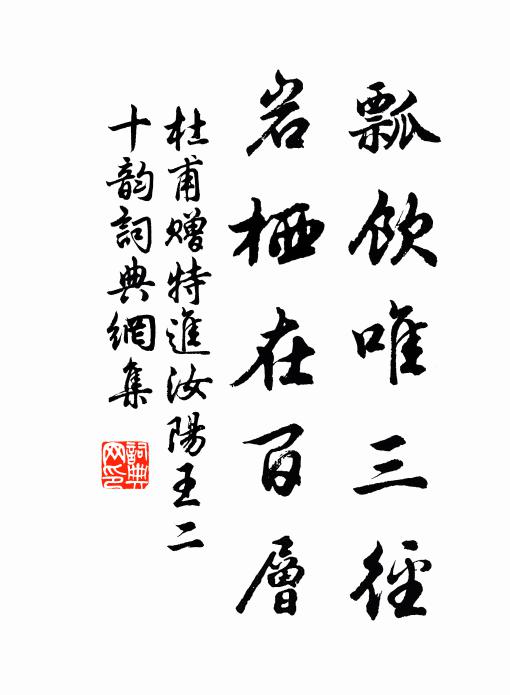 瓢飲唯三徑
岩栖在百層
杜甫赠特進汝陽王二
十韵詞典網集
詞典
网印